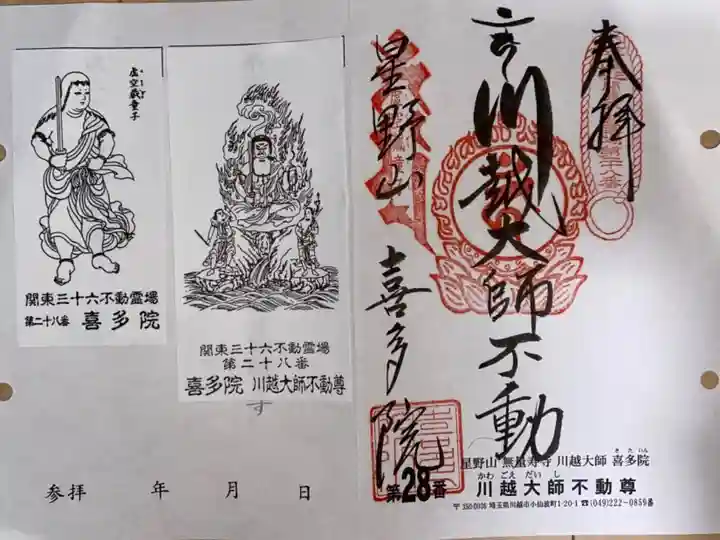 虚空蔵童子
こくうぞう
関東三十六不動霊場
第二十八番 喜多院
関東三十六不動霊場
第二十八番
喜多院 川越大師不動尊
す
参拝 年 月 日
奉拝
川越大師不動
星野山 喜多院
星野山 無量寿寺 川越大師 喜多院
きたいん
第28番
かわごえ だいし
川越大師不動尊
〒350-0036 埼玉県川越市小仙波町1-20-1 ☎(049)222-0859番